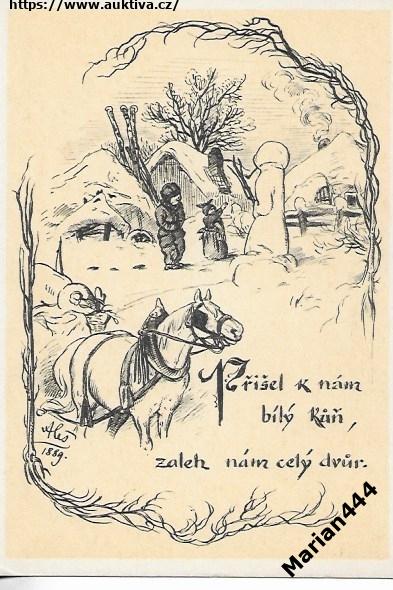 https://www.auktiva.cz/
Přišel k nám
bílý kůň,
zaleh nám celý dvůr.
Aleš
1889.
Marian444